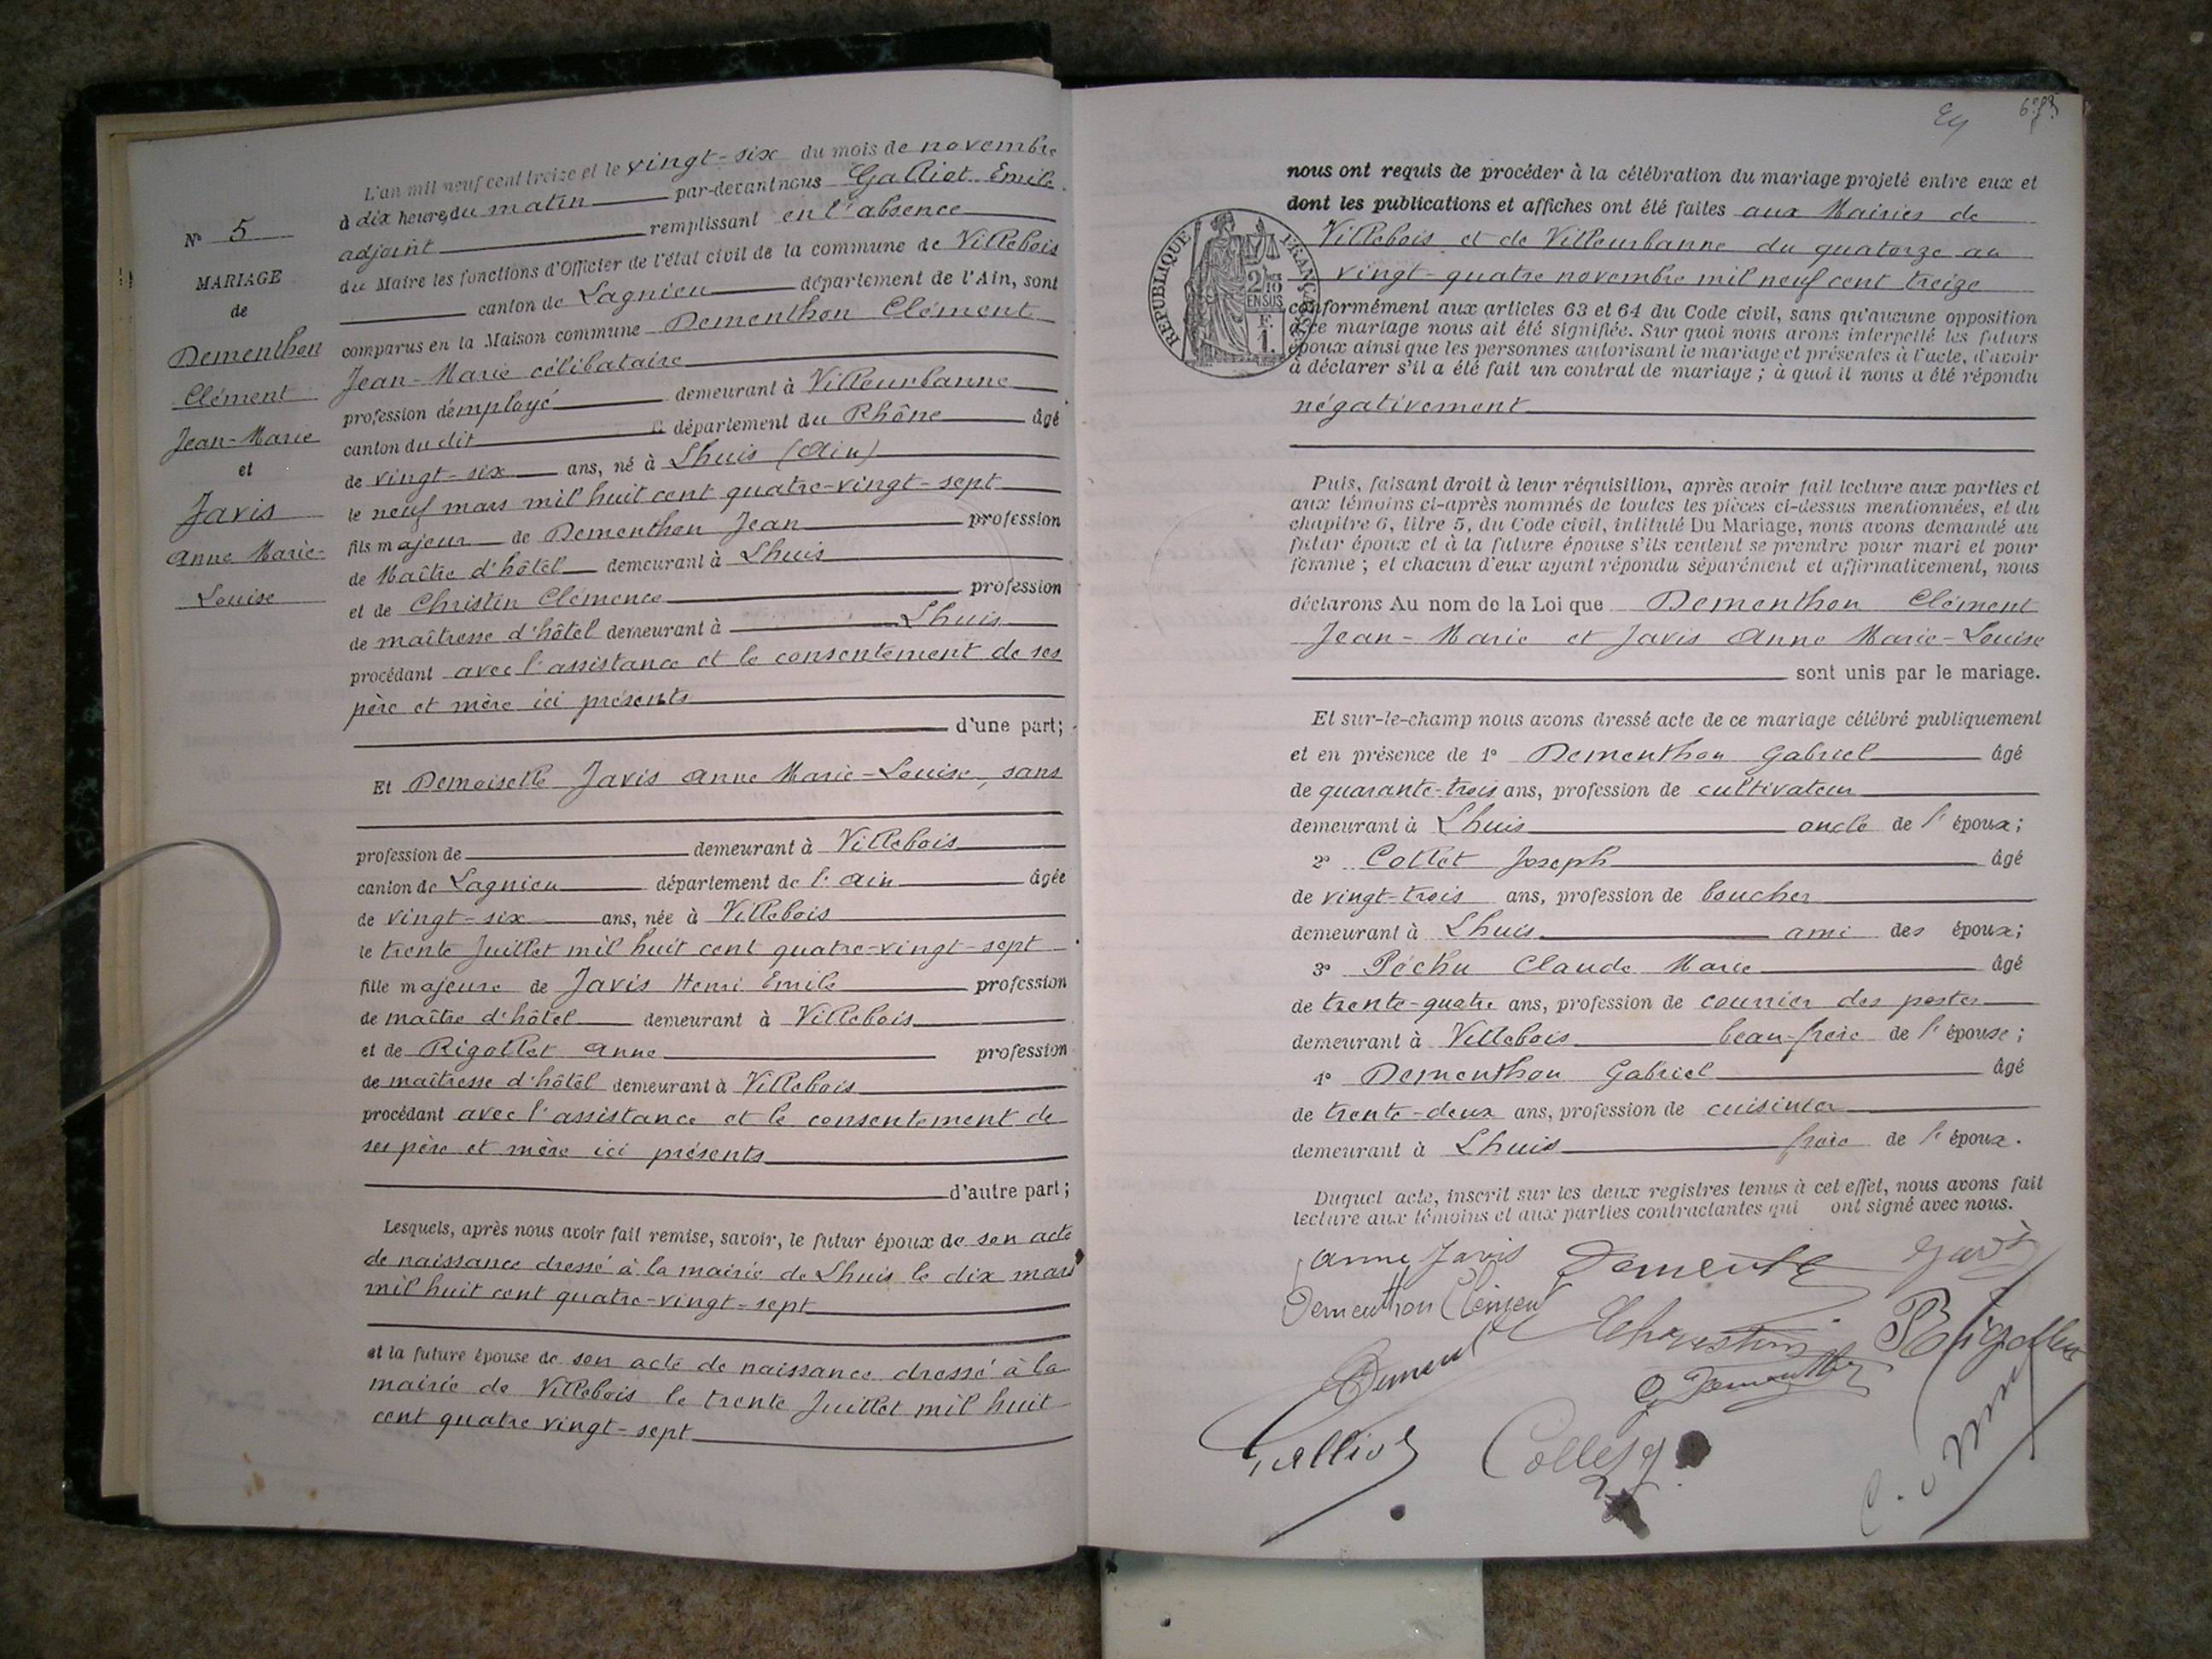 L'an mil neuf cent treize et le vingt-six du mois de novembre
à dix heures du matin par-devant nous Galliot Emile
adjoint remplissant en l'absence
du Maire les fonctions d'Officier de l'état civil de la commune de Villebois
canton de Lagnieu département de l'Ain, sont
comparus en la Maison commune Dementhon Clément
Jean-Marie célibataire
profession d'employé demeurant à Villeurbanne
canton du dit département du Rhône âgé
de vingt-six ans, né à Lhuis (Ain)
le neuf mars mil huit cent quatre-vingt-sept
fils majeur de Dementhon Jean profession
de Maître d'hôtel demeurant à Lhuis
et de Christin Clémence profession
de maîtresse d'hôtel demeurant à Lhuis
procédant avec l'assistance et le consentement de ses
père et mère ici présents
d'une part;
Et Demoiselle Javis Anne Marie-Louise, sans
profession de demeurant à Villebois
canton de Lagnieu département de l'Ain âgée
de vingt-six ans, née à Villebois
le trente Juillet mil huit cent quatre-vingt-sept
fille majeure de Javis Henri Emile profession
de maître d'hôtel demeurant à Villebois
et de Rigollet Anne profession
de maîtresse d'hôtel demeurant à Villebois
procédant avec l'assistance et le consentement de
ses père et mère ici présents
d'autre part;
Lesquels, après nous avoir fait remise, savoir, le futur époux de son acte
de naissance dressé à la mairie de Lhuis le dix mars
mil huit cent quatre-vingt-sept
et la future épouse de son acte de naissance dressé à la
mairie de Villebois le trente Juillet mil huit
cent quatre vingt-sept
N° 5
MARIAGE
de
Dementhon
Clément
Jean-Marie
et
Javis
Anne Marie-
Louise
nous ont requis de procéder à la célébration du mariage projeté entre eux et
dont les publications et affiches ont été faites aux Mairies de
Villebois et de Villeurbanne du quatorze au
vingt-quatre novembre mil neuf cent treize
conformément aux articles 63 et 64 du Code civil, sans qu'aucune opposition
à ce mariage nous ait été signifiée. Sur quoi nous avons interpellé les futurs
époux ainsi que les personnes autorisant le mariage et présentes à l'acte, d'avoir
à déclarer s'il a été fait un contrat de mariage; à quoi il nous a été répondu
négativement
RÉPUBLIQUE FRANÇAISE
2/10
EN SUS
F.
1.
Puis, faisant droit à leur réquisition, après avoir fait lecture aux parties et
aux témoins ci-après nommés de toutes les pièces ci-dessus mentionnées, et du
chapitre 6, titre 5, du Code civil, intitulé Du Mariage, nous avons demandé au
futur époux et à la future épouse s'ils veulent se prendre pour mari et pour
femme; et chacun d'eux ayant répondu séparément et affirmativement, nous
déclarons Au nom de la Loi que Dementhon Clément
Jean-Marie et Javis Anne Marie-Louise
sont unis par le mariage.
Et sur-le-champ nous avons dressé acte de ce mariage célébré publiquement
et en présence de 1° Dementhon Gabriel âgé
de quarante-trois ans, profession de cultivateur
demeurant à Lhuis oncle de l'époux;
2° Collet Joseph âgé
de vingt-trois ans, profession de boucher
demeurant à Lhuis ami des époux;
3° Péchu Claude Marie âgé
de trente-quatre ans, profession de courrier des postes
demeurant à Villebois beau-frère de l'épouse;
4° Dementhon Gabriel âgé
de trente-deux ans, profession de cuisinier
demeurant à Lhuis frère de l'époux.
Duquel acte, inscrit sur les deux registres tenus à cet effet, nous avons fait
lecture aux témoins et aux parties contractantes qui ont signé avec nous.
Anne Javis
Dementhon Clément
Christin
Rigollet
G Dementhon
Galliot
Collet J